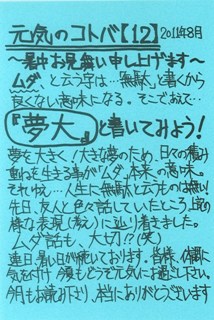 元気のコトバ【12】 2011年8月
〜暑中お見舞い申し上げます〜
ムダ と云う字は…「無駄」と書くから
良くない意味になる。そこであえて…
『夢大』と書いてみよう!
夢を大きく!大きな夢のため、日々の積み
重ねを生きる事が「ムダ」本来の意味。
それゆえ…人生に無駄と云うものは無い!
先日、友人と色々話していたところ上記の
様な表現(教え)に辿り着きました。
ムダ話も、大切!?(笑)
連日暑い日が続いております。皆様、体調に
気を付け 8月もどうぞ元気にお過し下さい。
今月もお読み下り、本当にありがとうございます